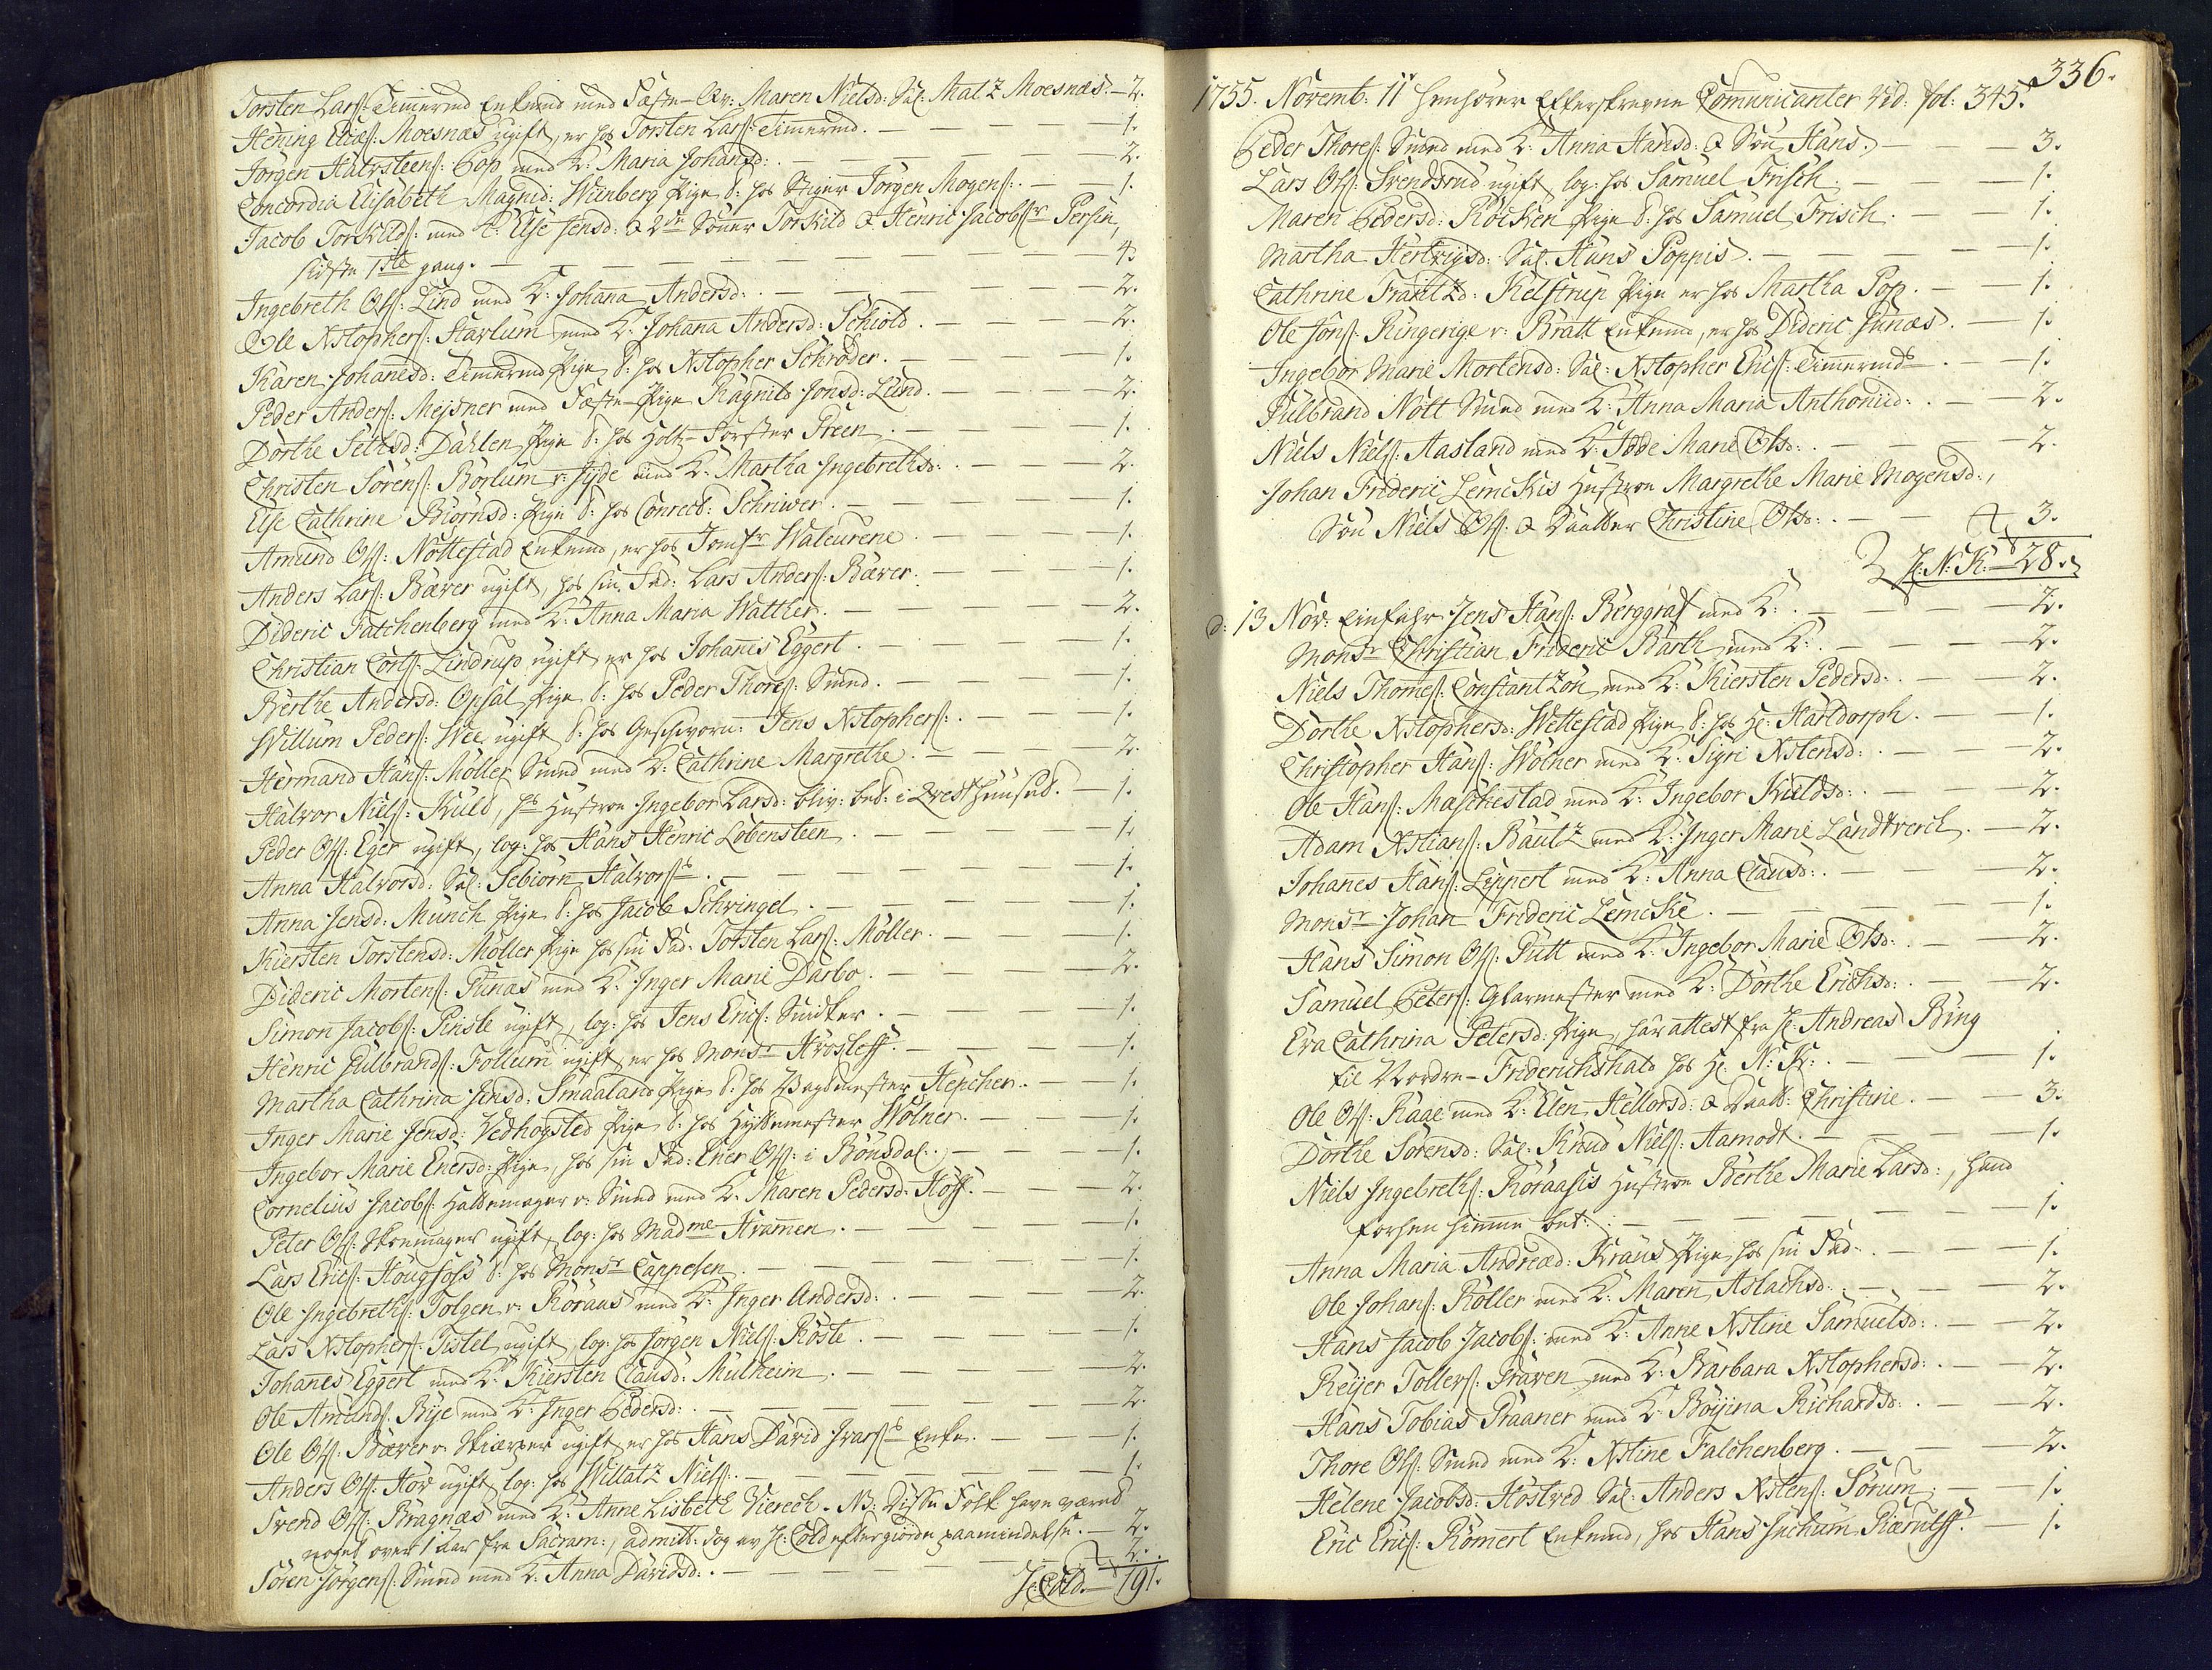 Torsten Lars: Timermd Enkemd med Fæste-Qv: Maren Nielsd: Sal: Matz Moesnæs. — 2.
Hening Elias: Moesnæs ugift, er hos Torsten Lars: Timermd. — 1.
Jørgen Halvsteens: Bop med K: Maria Johansd: — 2.
Concordia Elisabeth Magnid: Wiinberg Pige t: hos Stiger Jørgen Mogens: — 1.
Jacob Torkilds: med K: Else Jensd: & 2de Sønner Torkild & Henric Jacobssr Persin,
sidste 1ste gang. — 4
Ingebreth Ols: Lind med K: Johana Andersd: — 2.
Ole Xstophers: Harlum med K: Johana Andersd: Schiold. — 2.
Karen Johanesd: Timermd Pige t: hos Xstopher Schrøder. — 1.
Peder Anders: Meisner med Fæste-Pige Ragnild Jonsd: Lund. — 2.
Dorthe Sethsd: Dahlen Pige t: hos Holtz-Førster Preen. — 1.
Christen Sørens: Børlum v: Jyde med K: Martha Ingebrethsd: — 2.
Else Cathrine Biørnsd: Pige t: hos Conrect: Schriwer. — 1.
Amund Ols: Nøttestad Enkemd, er hos Jomfr Waleurene. — 1.
Anders Lars: Bæver ugift, hos sin Fad: Lars Anders: Bæver. — 1.
Dideric Falchenberg med K: Anna Maria Walther. — 2.
Christian Corts: Lindrup ugift, er hos Johanes Eggert. — 1.
Berthe Andersd: Opsal Pige t: hos Peder Thores: Smed. — 1.
Willum Peders: Wee ugift t: hos Geschworn: Jens Xstophers: — 1.
Hermand Hans: Møller Smed med K: Cathrine Margrethe. — 2.
Halvor Niels: Kuld, hs Hustroe Ingebor Larsd: bliv: bet: i Qvesthuuset. — 1.
Peder Ols: Eger ugift, log: hos Hans Henric Løbensteen. — 1.
Anna Halvorsd: Sal: Sebiørn Halvorss. — 1.
Anna Jensd: Munch Pige t: hos Jacob Schwingel. — 1.
Kiersten Torstensd: Møller Pige hos sin Fad: Torsten Lars: Møller. — 1.
Dideric Mortens: Funæs med K: Inger Marie Darbo. — 2.
Simon Jacobs: Pinsle ugift, log: hos Jens Erics: Snidker. — 1.
Henric Gulbrands: Follum ugift, er hos Monsr Hrosleff. — 1.
Martha Cathrina Jensd: Smaaland Pige t: hos Bagermester Hencher. — 1.
Inger Marie Jensd: Vedhogsted Pige t: hos Hyttemester Wølner. — 1.
Ingebor Marie Enersd: Pige, hos sin Fad: Ener Ols: i Bonsdal. — 1.
Cornelius Jacobs: Hattemager v: Smed med K: Maren Pedersd: Hoff. — 2.
Peter Ols: Skoemager ugift, log: hos Madme Kramen. — 1.
Lars Erics: Hougfoss t: hos Monsr Cappelen. — 1.
Ole Ingebreths: Tolgen v: Røraas med K: Inger Andersd: — 2.
Lars Xstophers: Tistel ugift, log: hos Jørgen Niels: Roste. — 1.
Johanes Eggert med K: Kiersten Clausd: Mulheim. — 2.
Ole Amunds: Bye med K: Inger Pedersd: — 2.
Ole Ols: Bæver v: Skiærper ugift, er hos Hans David Ivarss Enke. — 1.
Anders Ols: Hov ugift, log: hos Willatz Niels: — 1.
Svend Ols: Bragnæs med K: Anne Lisbeth Viereck. NB: Disse Folk have været
noget over 1 Aar fra Sacram:, admitt: dog av H: Cold efter giorde paamindelse. — 2.
Søren Jørgens: Smed med K: Anna Davidsd: — 2.
H: Cold. — 191.
336.
1755. Novemb: 11 henhører Efterskrevne Comunicanter Vid: fol: 345.
Peder Thores: Smed med K: Anna Hansd: & Søn Hans. — 3.
Lars Ols: Svendsrud ugift, log: hos Samuel Frisch. — 1.
Maren Pedersd: Røcken Pige t: hos Samuel Frisch. — 1.
Martha Hertvigsd: Sal: Hans Poppis. — 1.
Cathrine Frantzd: Kelstrup Pige er hos Martha Pop. — 1.
Ole Jons: Ringerige v: Bratt Enkemd, er hos Dideric Funæs. — 1.
Ingebor Marie Mortensd: Sal: Xstopher Erics: Timermds. — 1.
Gulbrand Nøtt Smed med K: Anna Maria Anthonid: — 2.
Niels Niels: Aasland med K: Idde Marie Olsd: — 2.
Johan Frideric Lemckis Hustroe Margrethe Marie Mogensd:,
Søn Niels Ols: & Daatter Christine Olsd: — 3.
H: N: K: — 28.
d: 13 Nov: Einfahr Jens Hans: Berggraf med K: — 2.
Monsr Christian Frideric Barth med K: — 2.
Niels Thomes: Constantzon med K: Kiersten Pedersd: — 2.
Dorthe Xstophersd: Wettestad Pige t: hos H: Harldorph. — 1.
Christopher Hans: Wølner med K: Sigri Xstensd: — 2.
Ole Hans: Maschestad med K: Ingebor Kieldsd: — 2.
Adam Xstians: Bautz med K: Inger Marie Landtverch. — 2.
Johanes Hans: Lippert med K: Anna Clausd: — 2.
Monsr Johan Frideric Lemcke. — 1.
Hans Simon Ols: Putt med K: Ingebor Marie Olsd: — 2.
Samuel Peters: Glarmester med K: Dorthe Erichsd: — 2.
Eva Cathrina Petersd: Pige, har attest fra H: Andreas Bing
til Nordre-Friderichshald hos H: N: K: — 1.
Ole Ols: Raae med K: Elen Hellorsd: & Daatt: Christine. — 3.
Dorthe Sørensd: Sal: Knud Niels: Aamodt. — 1.
Niels Ingebreths: Røraasis Hustroe Berthe Marie Larsd:, hand
forhen hiemme bet: — 1.
Anna Maria Andread: Kraus Pige hos sin Fad: — 1.
Ole Johans: Røller med K: Maren Aslachsd: — 2.
Hans Jacob Jacobs: med K: Anne Xstine Samuelsd: — 2.
Reyer Tollers: Graven med K: Barbara Xstophersd: — 2.
Hans Tobias Praaner med K: Boyina Richardsd: — 2.
Thore Ols: Smed med K: Xstine Falchenberg. — 2.
Helene Jacobsd: Høstved Sal: Anders Xstens: Sørum. — 1.
Eric Erics: Romert Enkemd, hos Hans Juchum Kierulff. — 1.